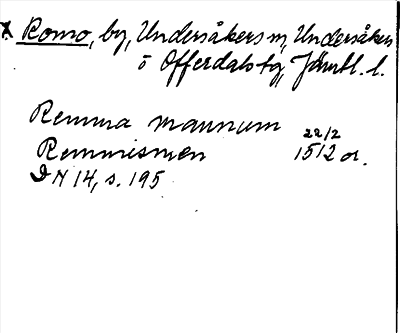 x Romo, by, Undersåkers sn, Undersåkers
o Offerdals tg, Jämtl. l.
Remma mannum
Remmismen 22/2 1512 or.
DN 14, s. 195